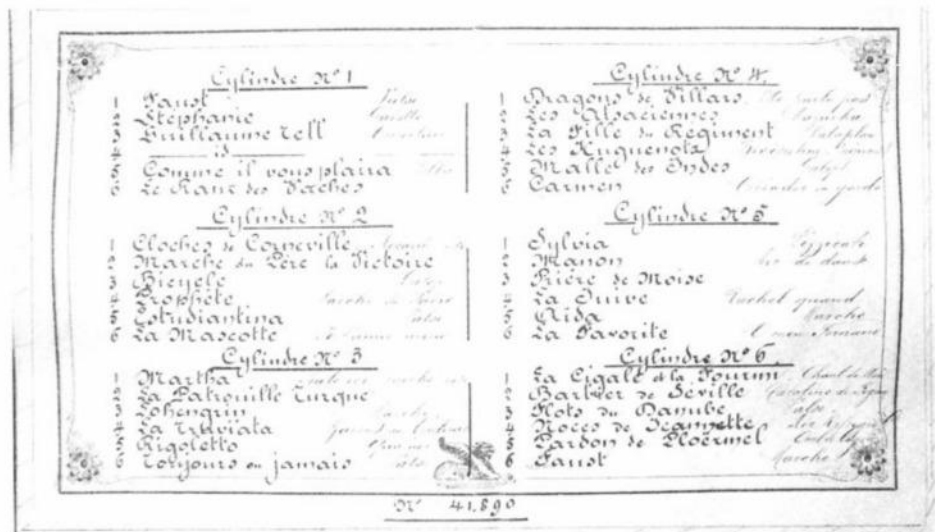 Cylindre Nº 1
1 Faust Valse
2 Stéphanie Gavotte
3 Guillaume Tell Ouverture
4 id
5 Comme il vous plaira
6 Le Ranz des Vaches
Cylindre Nº 2
1 Cloches de Corneville
2 Marche du Père la Victoire
3 Bicycle
4 Prophète Marche du Sacre
5 Estudiantina Valse
6 La Mascotte
Cylindre Nº 3
1 Martha
2 La Patrouille Turque
3 Lohengrin
4 La Traviata
5 Rigoletto
6 Toujours ou jamais Valse
Cylindre Nº 4
1 Dragons de Villars
2 Les Alsaciennes Mazurka
3 La Fille du Régiment Rataplan
4 Les Huguenots
5 Malle des Indes Galop
6 Carmen Toréador en garde
Cylindre Nº 5
1 Sylvia Pizzicati
2 Manon
3 Prière de Moïse
4 La Juive Rachel quand
5 Aïda Marche
6 La Favorite O mon Fernand
Cylindre Nº 6
1 La Cigale et la Fourmi
2 Barbier de Séville
3 Flots du Danube Valse
4 Noces de Jeannette
5 Pardon de Ploërmel
6 Faust Marche
Nº 41,890